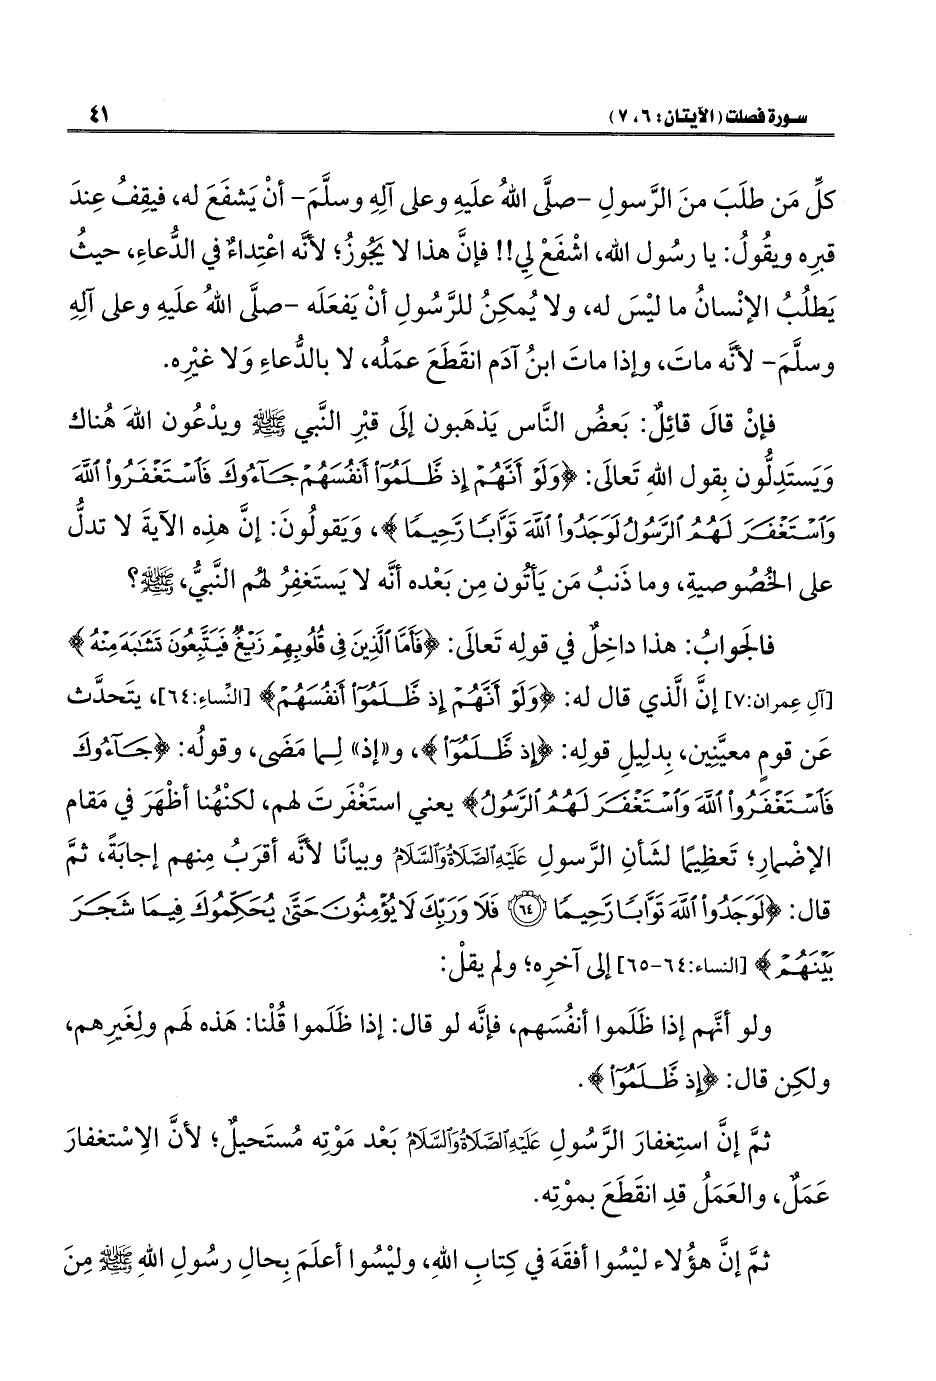 سورة فصلت (الآيتان: ٦، ٧)
٤١
كلِّ مَن طلَبَ منَ الرَّسولِ -صلَّى اللهُ علَيهِ وعلى آلِهِ وسلَّمَ- أنْ يَشفَعَ له، فيقِفُ عِندَ
قبرِه ويقُولُ: يا رسُول الله، اشْفَعْ لِي!! فإنَّ هذا لا يَجُوزُ؛ لأنَّه اعْتِداءٌ في الدُّعاءِ، حيثُ
يَطلُبُ الإنْسانُ ما ليْسَ له، ولا يُمكِنُ للرَّسُولِ أنْ يَفعَلَه -صلَّى اللهُ علَيهِ وعلى آلِهِ
وسلَّمَ- لأنَّه ماتَ، وإذا ماتَ ابنُ آدَم انقَطَعَ عمَلُه، لا بالدُّعاءِ وَلا غيْرِه.
فإنْ قالَ قائِلٌ: بَعضُ النَّاس يَذهَبون إلَى قبْرِ النَّبي ﷺ ويدْعُون اللهَ هُناك
وَيَستَدِلُّون بِقول اللهِ تَعالَى: ﴿وَلَوْ أَنَّهُمْ إِذ ظَّلَمُوٓا۟ أَنفُسَهُمْ جَآءُوكَ فَٱسْتَغْفَرُوا۟ ٱللَّهَ
وَٱسْتَغْفَرَ لَهُمُ ٱلرَّسُولُ لَوَجَدُوا۟ ٱللَّهَ تَوَّابًا رَّحِيمًا﴾، وَيَقولُونَ: إنَّ هذِه الآيةَ لا تدلُّ
على الخُصُوصيةِ، وما ذَنبُ مَن يَأتُون مِن بَعْده أنَّه لا يَستَغفِرُ لهُم النَّبيُّ، ﷺ؟
فالجَوابُ: هذا داخِلٌ في قولِه تَعالَى: ﴿فَأَمَّا ٱلَّذِينَ فِى قُلُوبِهِمْ زَيْغٌ فَيَتَّبِعُونَ مَا تَشَٰبَهَ مِنْهُ﴾
[آلِ عِمران:٧] إنَّ الَّذي قال له: ﴿وَلَوْ أَنَّهُمْ إِذ ظَّلَمُوٓا۟ أَنفُسَهُمْ﴾ [النِّساءِ:٦٤]، يتَحدَّث
عَن قومٍ معيَّنِين، بِدليلِ قولِه: ﴿إِذ ظَّلَمُوٓا۟﴾، و«إذ» لِما مَضَى، وقولُه: ﴿جَآءُوكَ
فَٱسْتَغْفَرُوا۟ ٱللَّهَ وَٱسْتَغْفَرَ لَهُمُ ٱلرَّسُولُ﴾ يعني استَغْفَرتَ لهم، لكنَّهُنا أظْهَرَ في مَقام
الإضْمارِ؛ تَعظِيمًا لشَأنِ الرَّسولِ عَلَيْهِ ٱلصَّلَاةُ وَٱلسَّلَامُ وبيانًا لأنَّه أقرَبُ مِنهم إجابَةً، ثمَّ
قال: ﴿لَوَجَدُوا۟ ٱللَّهَ تَوَّابًا رَّحِيمًا ﴿٦٤﴾ فَلَا وَرَبِّكَ لَا يُؤْمِنُونَ حَتَّىٰ يُحَكِّمُوكَ فِيمَا شَجَرَ
بَيْنَهُمْ﴾ [النساء:٦٤-٦٥] إلى آخرِه؛ ولم يقلْ:
ولو أنَّهم إذا ظَلَموا أنفُسَهم، فإنَّه لو قال: إذا ظَلَموا قُلْنا: هَذه لَهم ولِغَيرِهم،
ولكِن قال: ﴿إِذ ظَّلَمُوٓا۟﴾.
ثمَّ إنَّ استِغفارَ الرَّسُولِ عَلَيْهِ ٱلصَّلَاةُ وَٱلسَّلَامُ بَعْد مَوْتِه مُستَحيلٌ؛ لأنَّ الِاسْتغفارَ
عَمَلٌ، والعَمَلُ قدِ انقَطَعَ بموْتِه.
ثمَّ إنَّ هؤُلاء ليْسُوا أفقَهَ في كِتابِ اللهِ، وليْسُوا أعلَمَ بِحالِ رسُولِ اللهِ ﷺ مِنَ